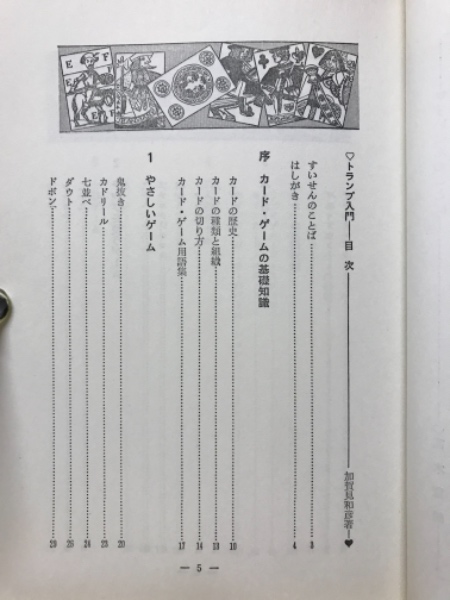 ♡トランプ入門──目次──加賀見和彦著─♥
すいせんのことば……3
はしがき……4
序 カード・ゲームの基礎知識
カードの歴史……10
カードの種類と組織……13
カードの切り方……14
カード・ゲーム用語集……17
1 やさしいゲーム
鬼抜き……20
カドリール……23
七並べ……24
ダウト……26
ドボン……29
— 5 —